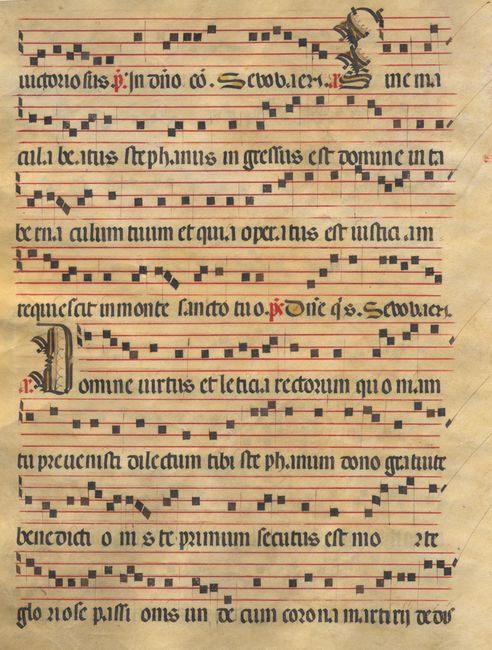 uictoriosus. p̄. In dn̄o cō. Seuouaen. a. Sine ma
cula beatus stephanus ingressus est domine in ta
bernaculum tuum et quia operatus est iusticiam
requiescit in monte sancto tuo. p̄s Dn̄e q̄s. Seuouaen.
a. Domine uirtus et leticia rectorum quoniam
tu preuenisti dilectum tibi stephanum dono gratuite
benedictionis te primum secutus est morte
gloriose passionis unde cum corona martirij dedis